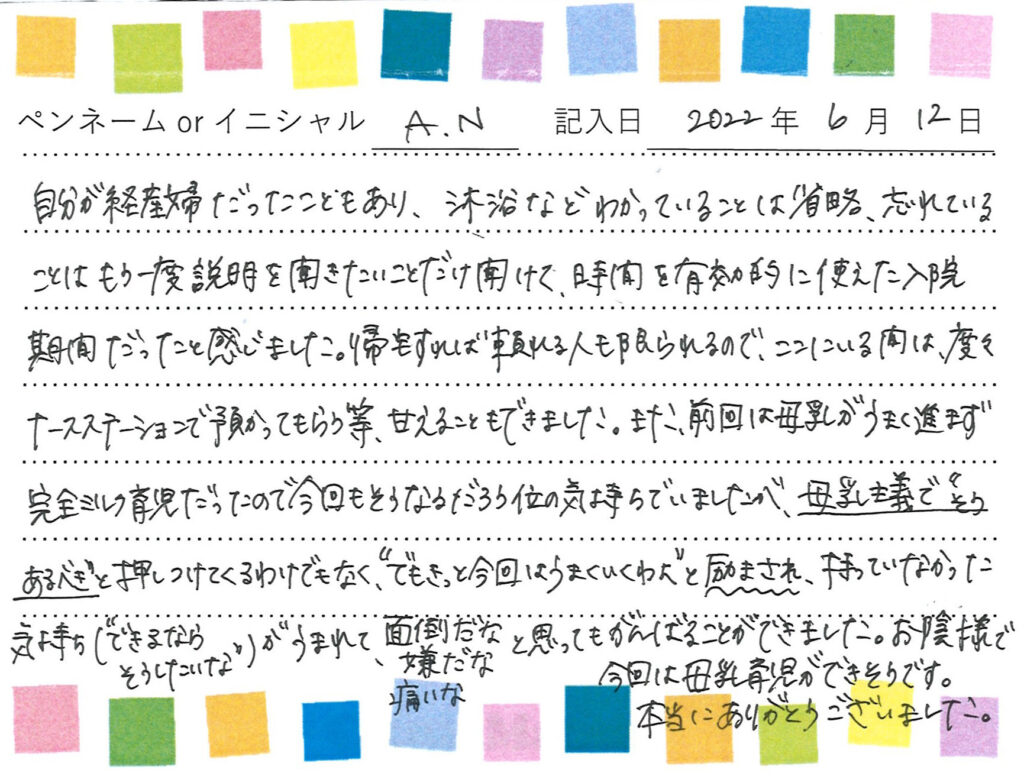 ペンネーム or イニシャル A.N 記入日 2022年 6月 12日
自分が経産婦だったこともあり、沐浴などわかっていることは省略、忘れている
ことはもう一度説明を聞きたいことだけ聞けて、時間を有効的に使えた入院
期間だったと感じました。帰宅すれば頼れる人も限られるので、ここにいる間は、度々
ナースステーションで預かってもらう等、甘えることもできました。また、前回は母乳がうまく進まず
完全ミルク育児だったので今回もそうなるだろう位の気持ちでいましたが、母乳主義で“そう
あるべき”と押しつけてくるわけでもなく、“でもきっと今回はうまくいくわよ”と励まされ、持っていなかった
気持ち(“できるなら
そうしたいな”)がうまれて、面倒だな
嫌だな
痛いな
と思ってもがんばることができました。お陰様で
今回は母乳育児ができそうです。
本当にありがとうございました。